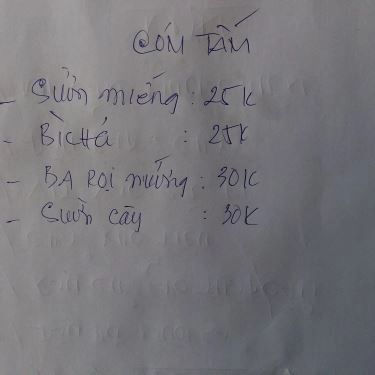 CƠM TẤM
- Sườn miếng : 25K
- Bì chả : 25K
- BA RỌI nướng : 30K
- Sườn cây : 30K